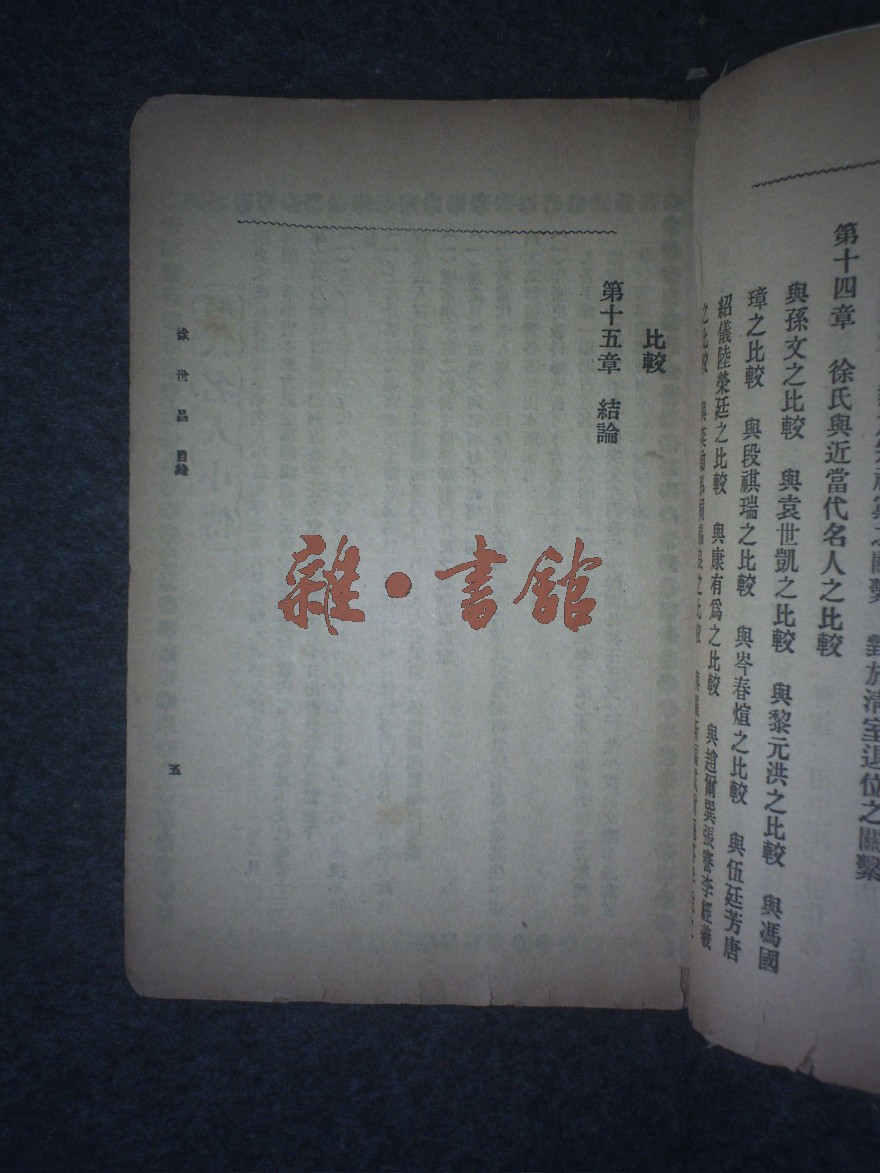 對於清室退位之關繫
第十四章 徐氏與近當代名人之比較
與孫文之比較 與袁世凱之比較 與黎元洪之比較 與馮國
璋之比較 與段祺瑞之比較 與岑春煊之比較 與伍廷芳唐
紹儀陸榮廷之比較 與康有爲之比較 與趙爾巽張謇李經羲
之比較
比較
第十五章 結論
徐世昌 目錄
五
雜·書館